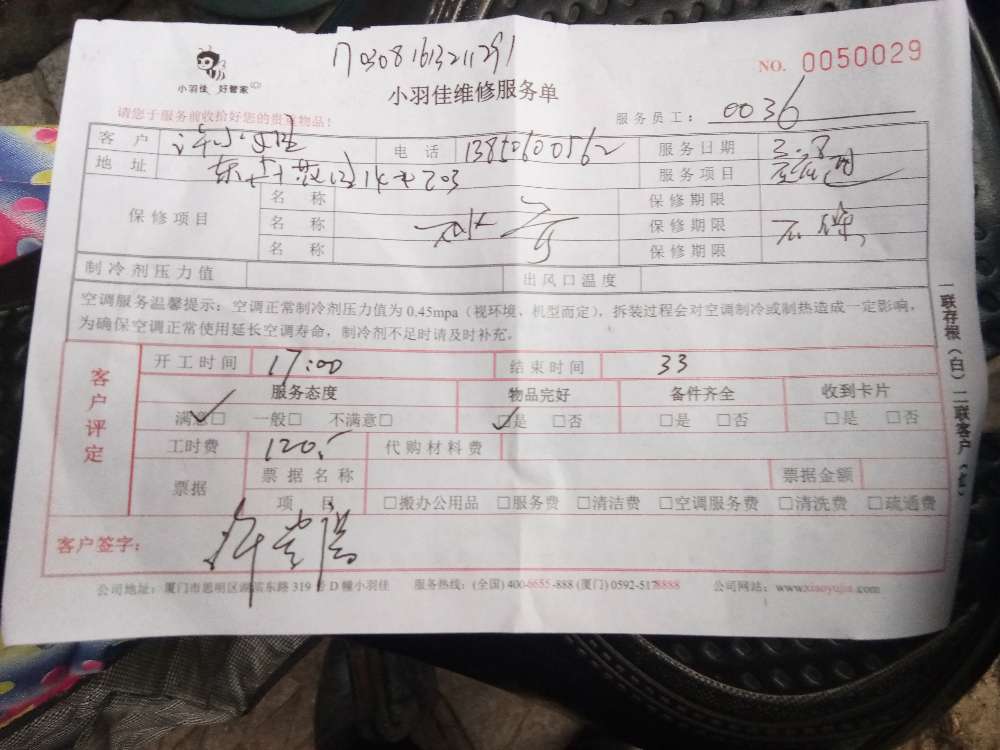 170308161321129
NO. 0050029
小羽佳 好管家
小羽佳维修服务单
请您于服务前收拾好您的贵重物品!
服务员工: 0036
客户 许小姐 电话 13850600562 服务日期 3.8
地址 203 服务项目
保修项目 名称 保修期限
名称 保修期限
名称 保修期限
制冷剂压力值 出风口温度
空调服务温馨提示:空调正常制冷剂压力值为 0.45mpa(视环境、机型而定),拆装过程会对空调制冷或制热造成一定影响,
为确保空调正常使用延长空调寿命,制冷剂不足时请及时补充。
客户评定
开工时间 17:00 结束时间 33
服务态度 物品完好 备件齐全 收到卡片
满意□ 一般□ 不满意□ □是 □否 □是 □否 □是 □否
工时费 120.- 代购材料费
票据 票据名称 票据金额
项目 □搬办公用品 □服务费 □清洁费 □空调服务费 □清洗费 □疏通费
客户签字:
公司地址:厦门市思明区湖滨东路 319 号 D 幢小羽佳 服务热线:(全国) 400-6655-888 (厦门) 0592-5178888 公司网站:www.xiaoyujia.com
一联存根(白)二联客户(红)